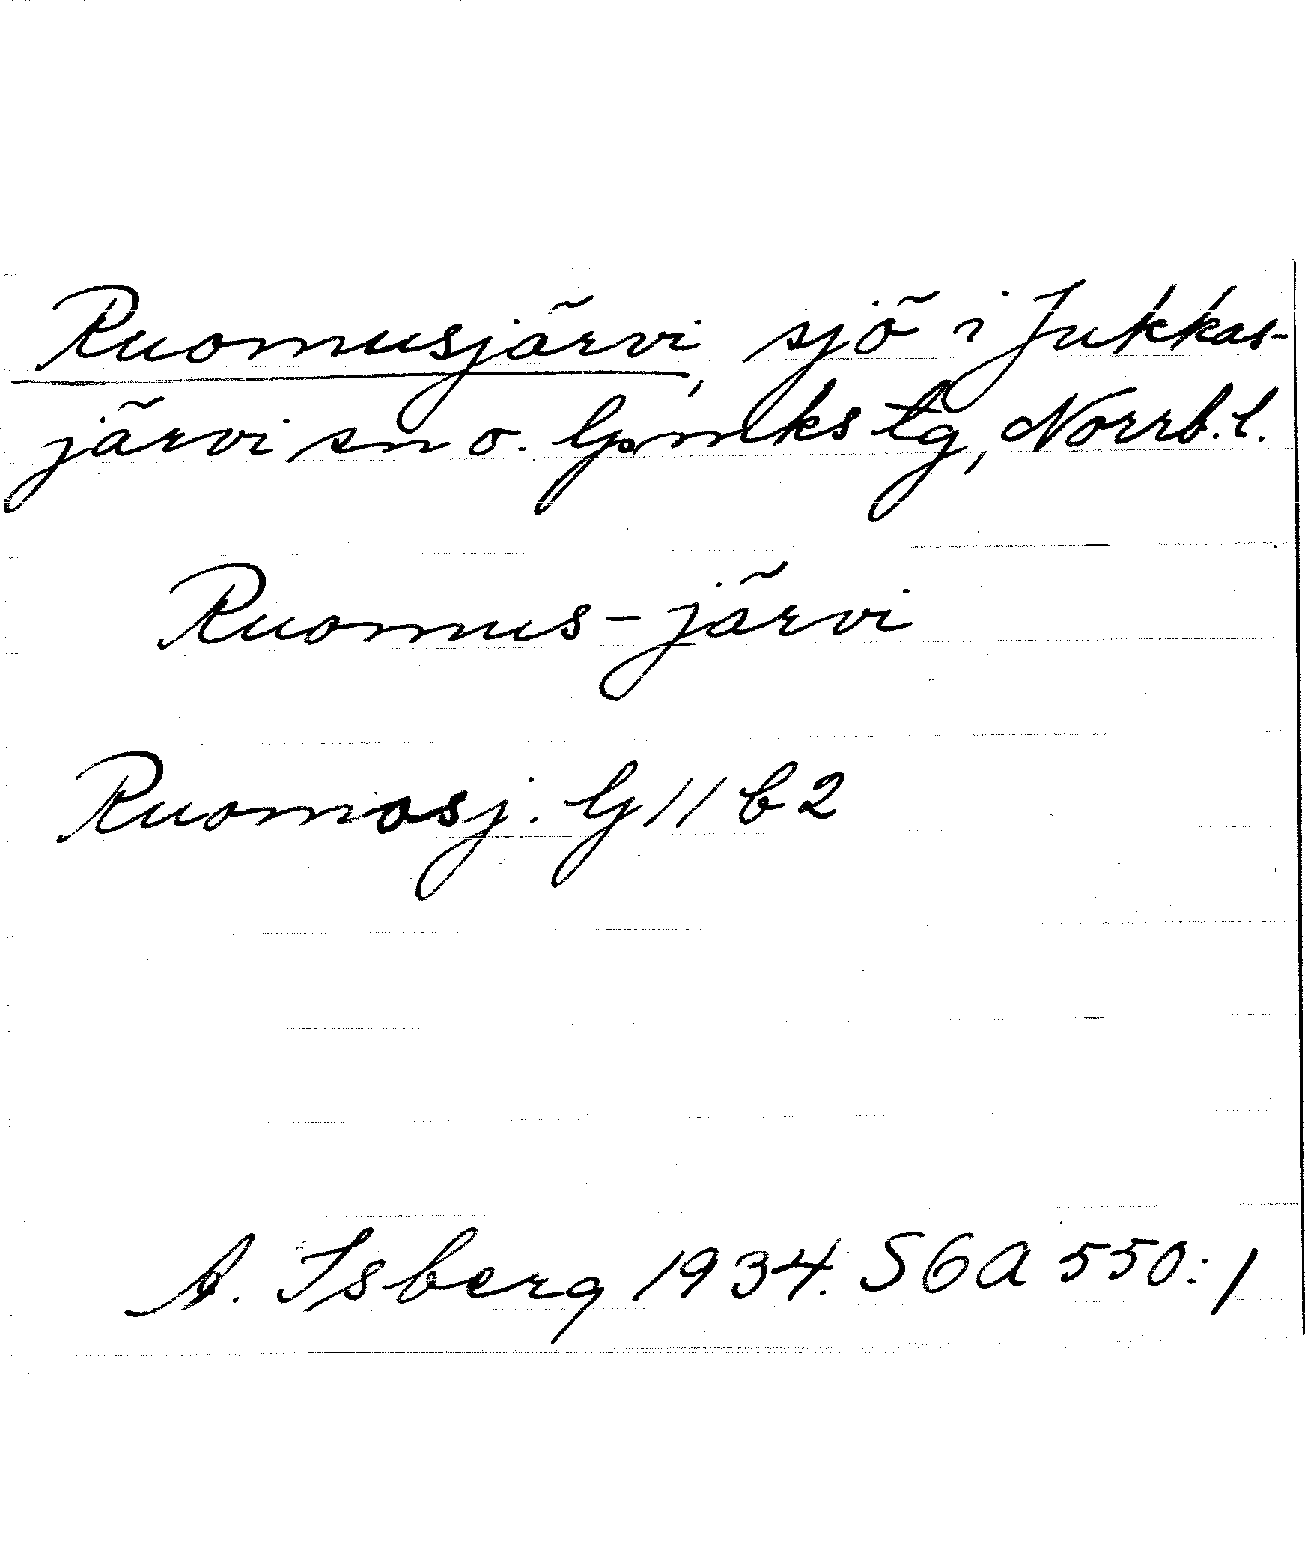 Ruomusjärvi, sjö i Jukkas-
järvi sn o. lpmks tg, Norrb. l.
Ruomus-järvi
Ruomosj. G 11 b 2
A. Isberg 1934. SGA 550:1